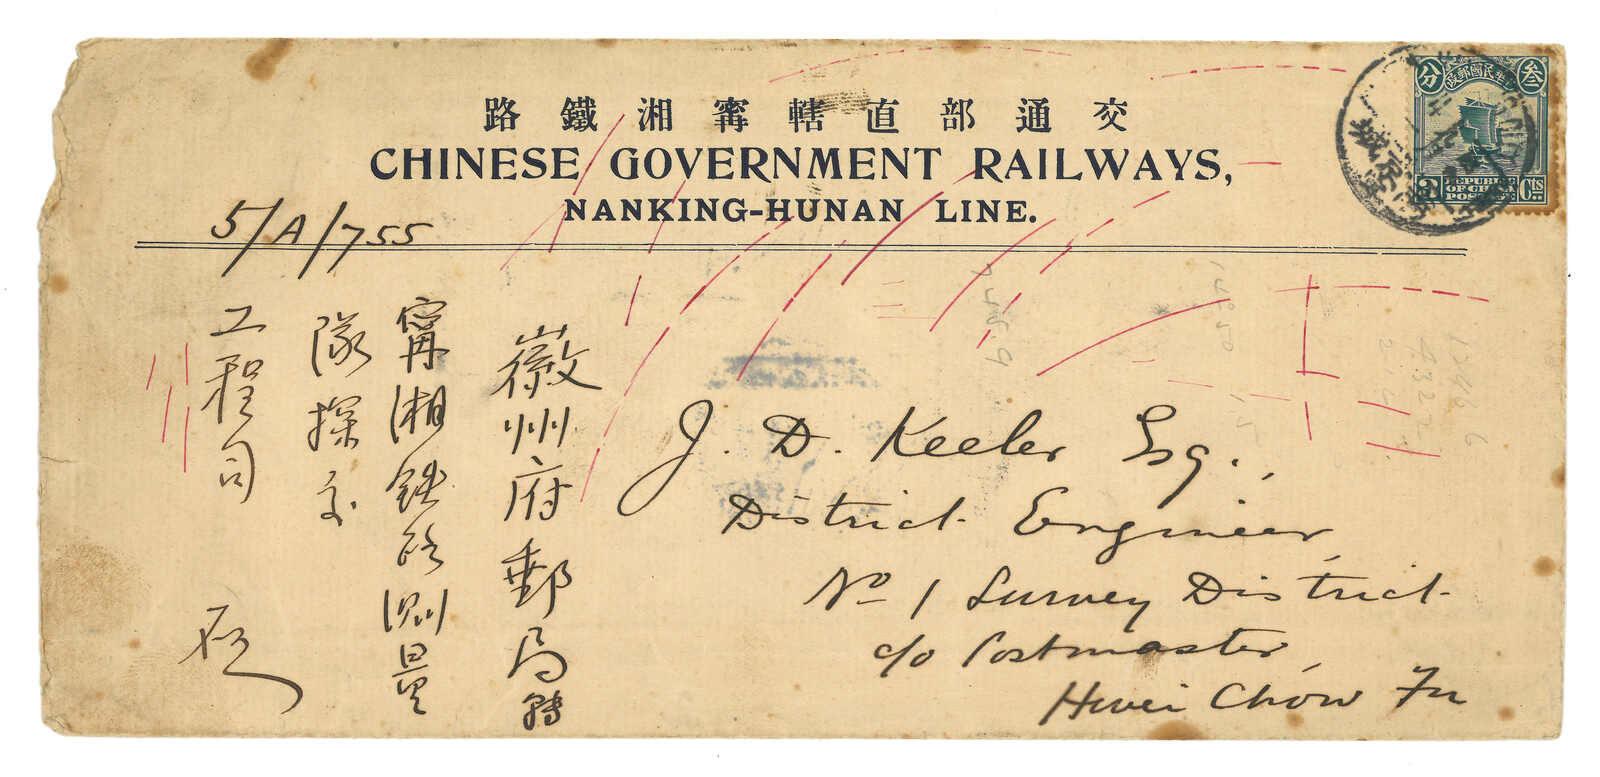 路鐵湘甯轄直部通交
CHINESE GOVERNMENT RAILWAYS,
NANKING-HUNAN LINE.
分 政郵國民華中 叁
3 Cts
REPUBLIC
OF CHINA
POSTAGE
5/A/755
徽州府郵局轉
甯湘鉄路測量
隊探交
工程司
J. D. Keeler Esq.,
District Engineer,
No 1 Survey District
c/o Postmaster,
Hwei Chow Fu